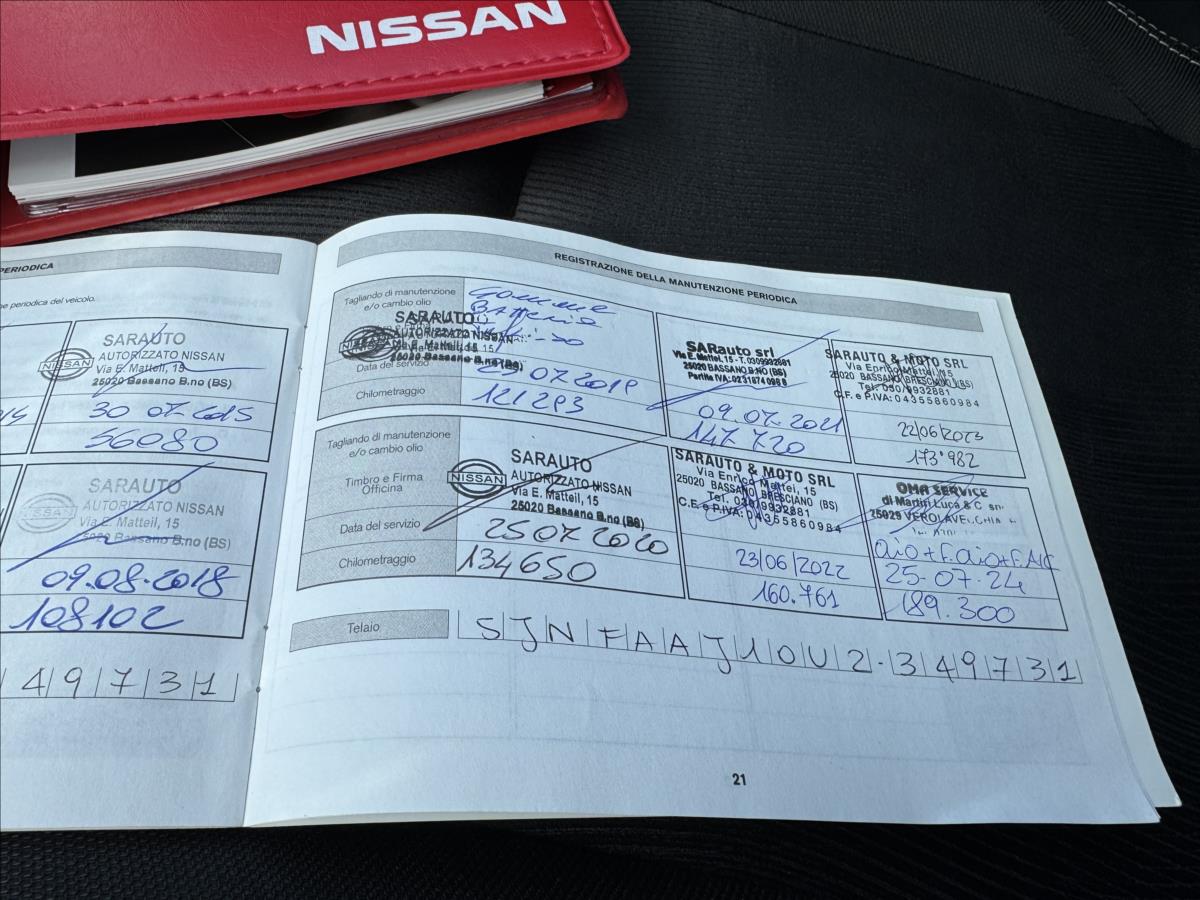 NISSAN
PERIODICA
ne periodica del veicolo.
SARAUTO
AUTORIZZATO NISSAN
Via E. Matteii, 15
25020 Bassano B.no (BS)
NISSAN
30 07 2015
56080
SARAUTO
AUTORIZZATO NISSAN
Via E. Matteii, 15
25020 Bassano B.no (BS)
NISSAN
09.08.2018
108102
49731
REGISTRAZIONE DELLA MANUTENZIONE PERIODICA
Tagliando di manutenzione
e/o cambio olio
Gomme
Batteria
SARAUTO
AUTORIZZATO NISSAN
25020 Bassano B.no (BS)
Data del servizio
07 2019
Chilometraggio
121293
SARauto srl
Via E. Mattei, 15 - T. 0309932881
25020 BASSANO BRESCIANO (BS)
09.07.2021
147.720
SARAUTO & MOTO SRL
Via Enrico Mattei, 15
25020 BASSANO BRESCIANO (BS)
Tel. 030/9932881
C.F. e P.IVA: 04355860984
22/06/2023
173.982
Tagliando di manutenzione
e/o cambio olio
Timbro e Firma
Officina
NISSAN
SARAUTO
AUTORIZZATO NISSAN
Via E. Matteii, 15
25020 Bassano B.no (BS)
Data del servizio
25 07 2020
Chilometraggio
134650
SARAUTO & MOTO SRL
Via Enrico Mattei, 15
25020 BASSANO BRESCIANO (BS)
Tel. 030/9932881
C.F. e P.IVA: 04355860984
23/06/2022
160.761
OMA SERVICE
di Martini Luca & C snc
25029 VEROLAVECCHIA
25-07-24
189.300
Telaio
SJNFAAJ10U2.349731
21